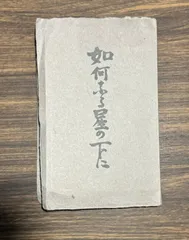 如何なる星の下に